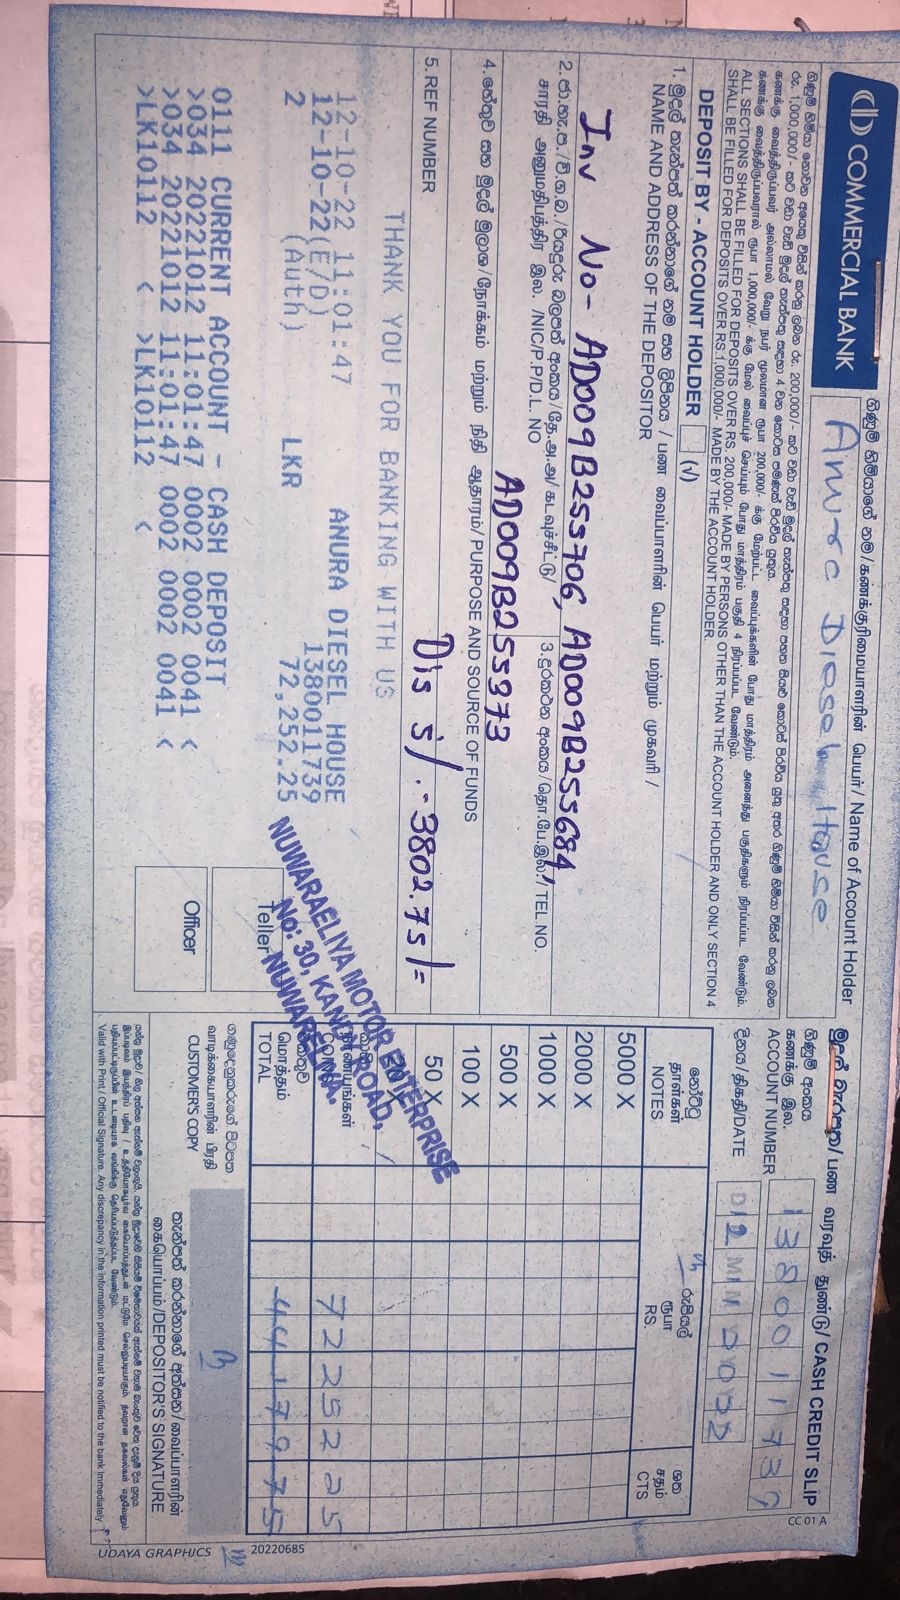 COMMERCIAL BANK
ගිණුම් හිමියාගේ නම / கணக்குரிமையாளரின் பெயர் / Name of Account Holder
Anura Diesel House
මුදල් බැරපත / பண வரவுத் துண்டு / CASH CREDIT SLIP
CC 01 A
ගිණුම් අංකය
கணக்கு இல.
ACCOUNT NUMBER
1380011739
දිනය / திகதி / DATE
ALL SECTIONS SHALL BE FILLED FOR DEPOSITS OVER RS. 200,000/- MADE BY PERSONS OTHER THAN THE ACCOUNT HOLDER AND ONLY SECTION 4
SHALL BE FILLED FOR DEPOSITS OVER RS.1,000,000/- MADE BY THE ACCOUNT HOLDER.
DEPOSIT BY - ACCOUNT HOLDER (√)
1. මුදල් තැන්පත් කරන්නාගේ නම සහ ලිපිනය / பண வைப்பாளரின் பெயர் மற்றும் முகவரி /
NAME AND ADDRESS OF THE DEPOSITOR
Inv No- AD009B255706, AD009B255684,
NIC/P.P/D.L. NO
3. දුරකථන අංකය / தொ.பே.இல. / TEL NO.
AD009B255373
4. හේතුව සහ මුදල් මූලාශ්‍ර / நோக்கம் மற்றும் நிதி ஆதாரம் / PURPOSE AND SOURCE OF FUNDS
Dis 5/. - 3802.75/=
5. REF NUMBER
THANK YOU FOR BANKING WITH US
12-10-22 11:01:47 ANURA DIESEL HOUSE
12-10-22(E/D) 1380011739
2 (Auth) LKR 72,252.25
0111 CURRENT ACCOUNT - CASH DEPOSIT
>034 20221012 11:01:47 0002 0002 0041 <
>034 20221012 11:01:47 0002 0002 0041 <
>LK10112 < >LK10112 <
Teller
Officer
NUWARAELIYA MOTOR ENTERPRISE
No: 30, KANDY ROAD,
NUWARAELIYA.
නෝට්ටු
தாள்கள்
NOTES
රුපියල්
ரூபா
RS.
ශත
சதம்
CTS
5000 X
2000 X
1000 X
500 X
100 X
50 X
7225225
மொத்தம்
TOTAL
4417975
வாடிக்கையாளரின் பிரதி
CUSTOMER'S COPY
තැන්පත් කරන්නාගේ අත්සන / வைப்பாளரின்
கையொப்பம் / DEPOSITOR'S SIGNATURE
Valid with Print / Official Signature. Any discrepancy in the information printed must be notified to the bank immediately.
UDAYA GRAPHICS
20220685